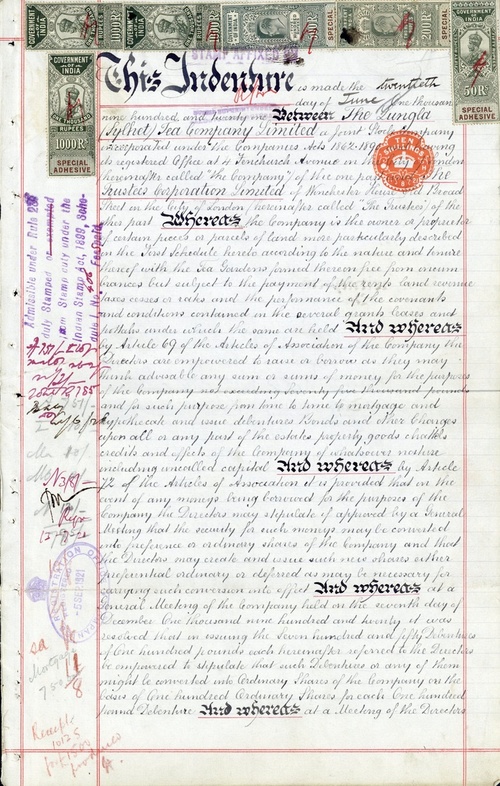 GOVERNMENT OF INDIA
1000R
SPECIAL ADHESIVE
200R
50Rs
SPECIAL ADHESIVE
GOVERNMENT OF INDIA
ONE THOUSAND RUPEES
1000R
SPECIAL ADHESIVE
STAMP AFFIXED
This Indenture is made the twentieth
day of June One thousand
nine hundred and twenty one Between The Lungla
(Sylhet) Tea Company Limited a Joint Stock Company
incorporated under the Companies Acts 1862-1890 having
its registered Office at 4 Fenchurch Avenue in the London
(hereinafter called "the Company") of the one part The
Trustees Corporation Limited of Winchester House Old Broad
Street in the City of London (hereinafter called "the Trustees") of the
other part Whereas the Company is the owner or proprietor
of certain pieces or parcels of land more particularly described
in the First Schedule hereto according to the nature and tenure
thereof with the Tea Gardens formed thereon free from incum-
brances but subject to the payment of the rents land revenue
taxes cesses or rates and the performance of the covenants
and conditions contained in the several grants leases and
pottahs under which the same are held And whereas
by Article 69 of the Articles of Association of the Company the
Directors are empowered to raise or borrow as they may
think advisable any sum or sums of money for the purposes
of the Company not exceeding Seventy five thousand pounds
and for such purpose from time to time to mortgage and
hypothecate and issue debentures Bonds and other Charges
upon all or any part of the estates property goods chattels
credits and effects of the Company of whatsoever nature
including uncalled capital And whereas by Article
72 of the Articles of Association it is provided that in the
event of any moneys being borrowed for the purposes of the
Company the Directors may stipulate if approved by a General
Meeting that the security for such moneys may be converted
into preference or ordinary shares of the Company and that
the Directors may create and issue such new shares either
preferential ordinary or deferred as may be necessary for
carrying such conversion into effect And whereas at a
General Meeting of the Company held on the seventh day of
December One thousand nine hundred and twenty it was
resolved that in issuing the Seven hundred and fifty Debentures
of One hundred pounds each hereinafter referred to the Directors
be empowered to stipulate that such Debentures or any of them
might be converted into Ordinary Shares of the Company on the
basis of One hundred Ordinary Shares for each One hundred
pound Debenture And whereas at a Meeting of the Directors
TEN SHILLINGS
Admissible under Rule
duly Stamped or exempted
from Stamp duty under the
Indian Stamp Act, 1899, Sche-
dule I No.
Fees paid
5 SEP 1921